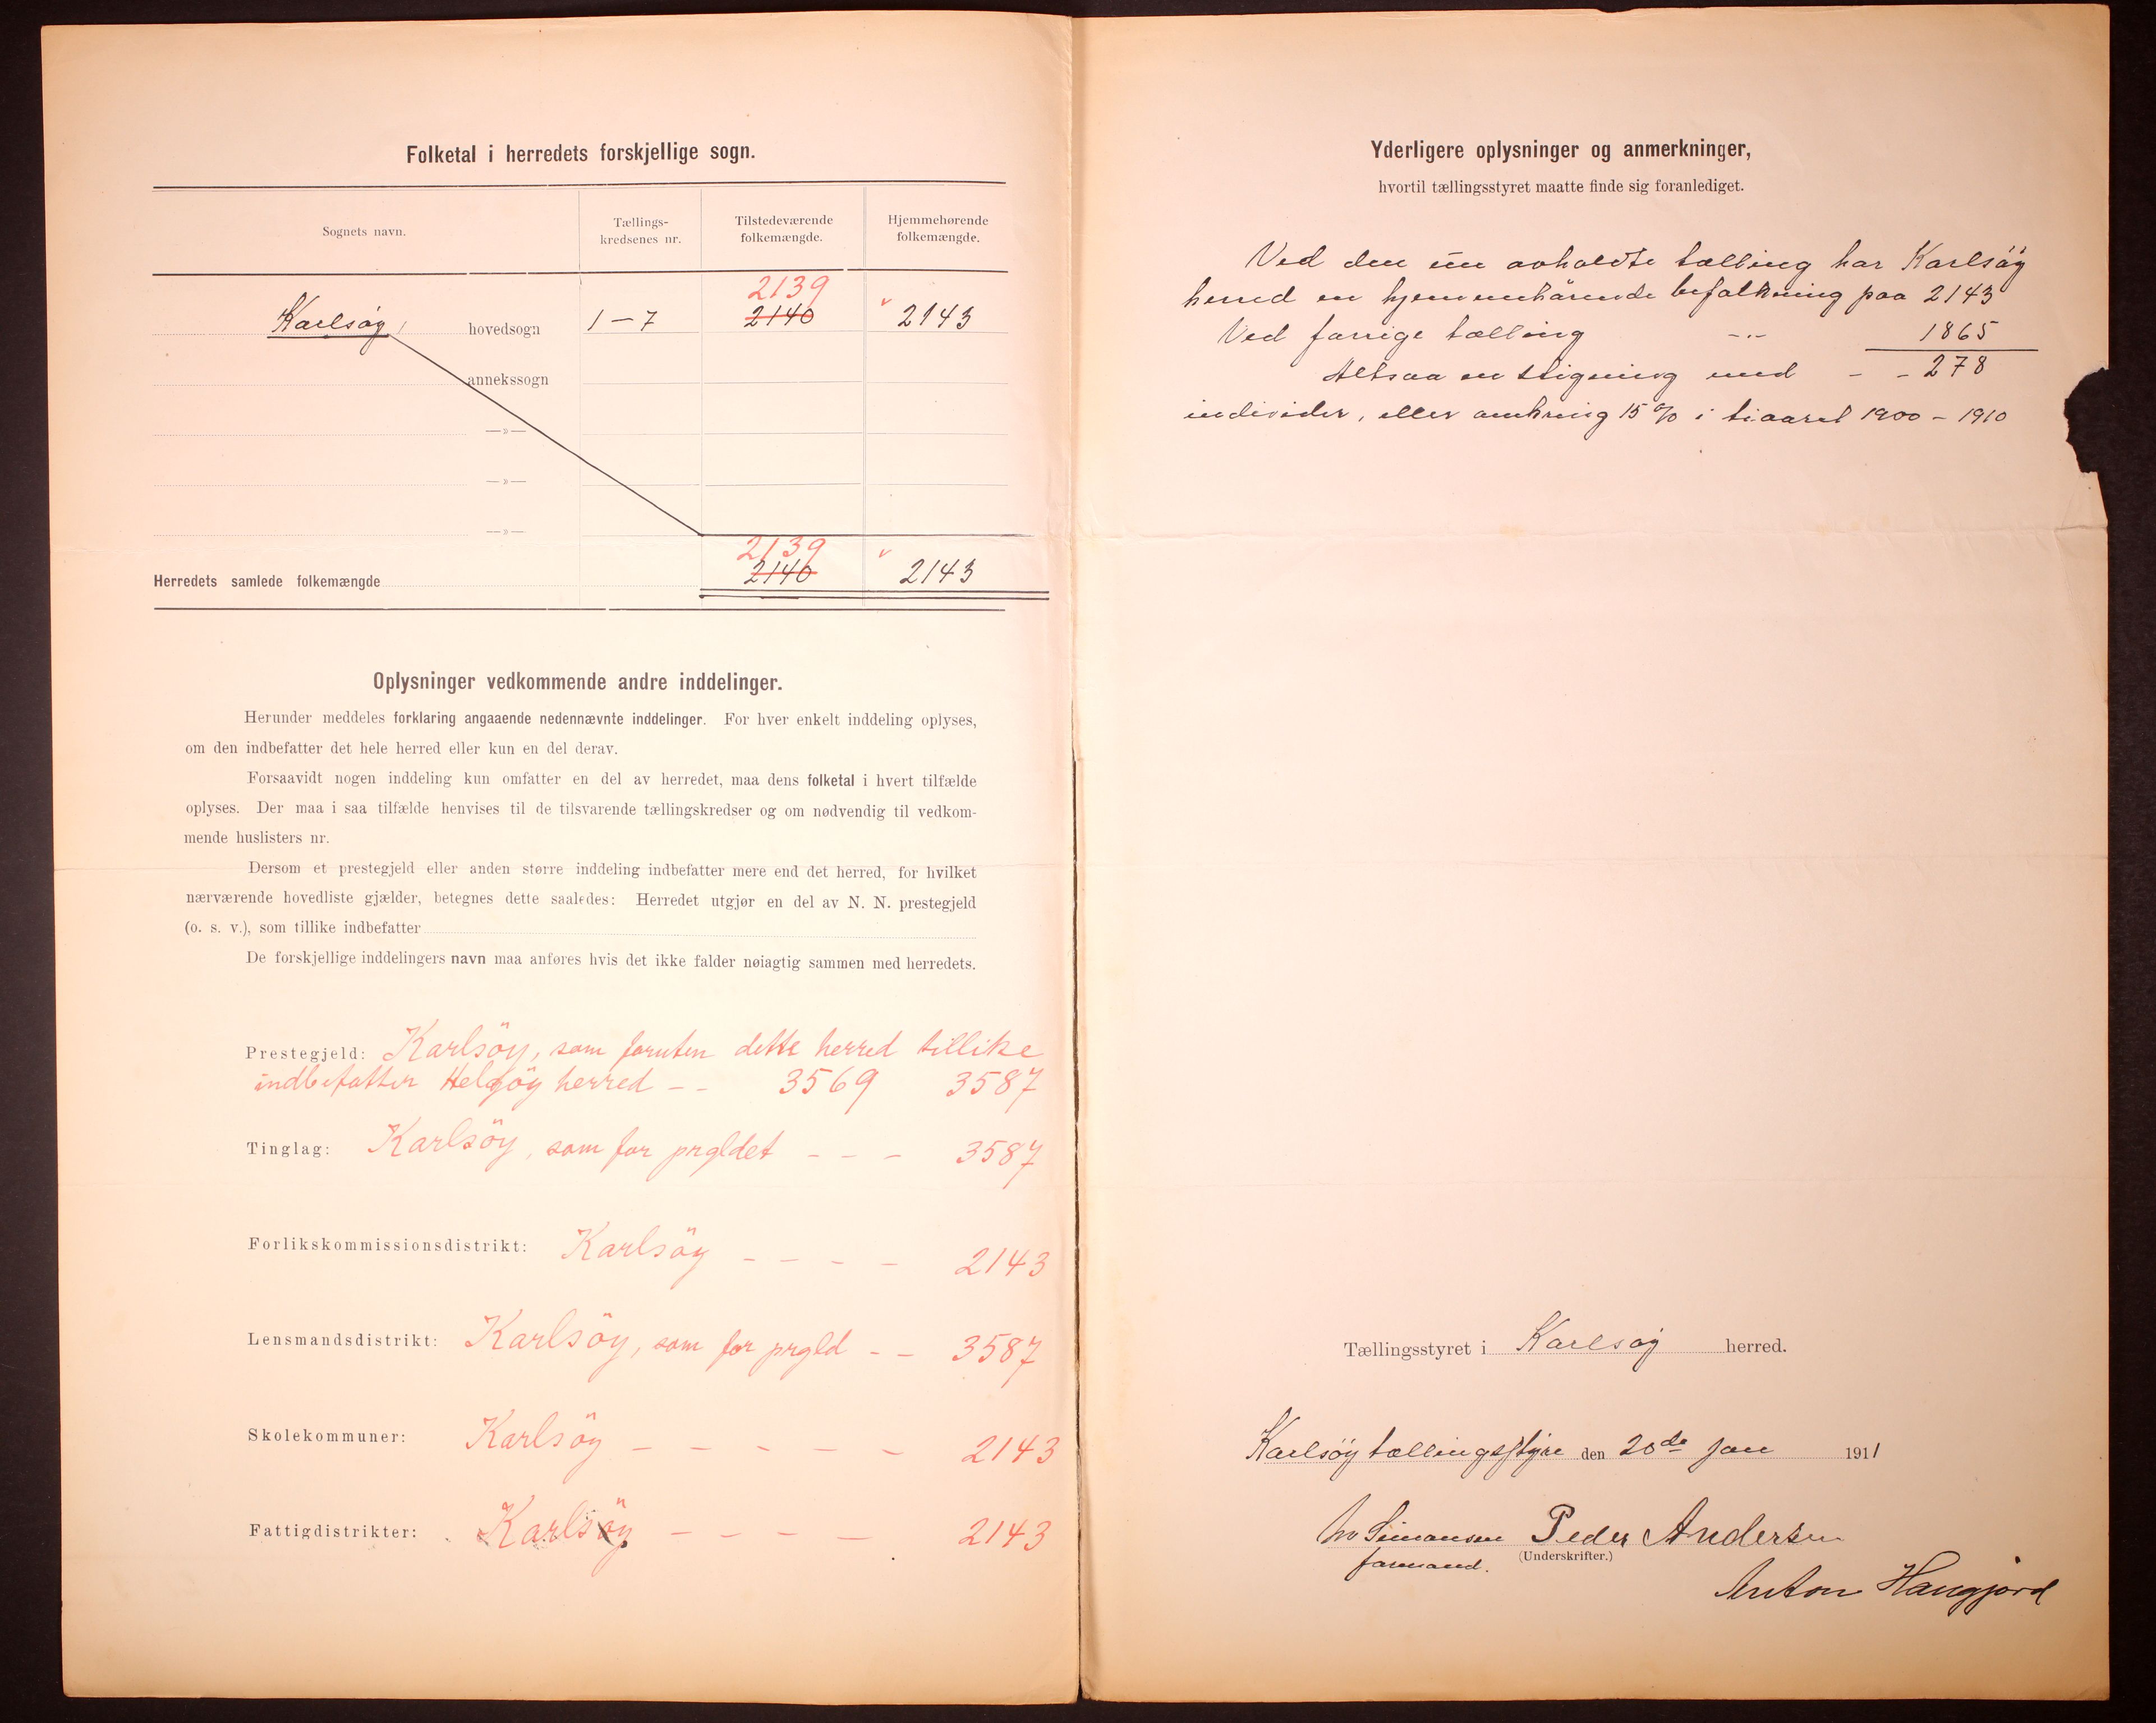 Folketal i herredets forskjellige sogn.
Sognets navn.
Tællings-
kredsenes nr.
Tilstedeværende
folkemængde.
Hjemmehørende
folkemængde.
2139
Karlsøy hovedsogn 1–7 2140 2143
annekssogn
—»—
—»—
—»—
2139
Herredets samlede folkemængde 2140 2143
Oplysninger vedkommende andre inddelinger.
Herunder meddeles forklaring angaaende nedennævnte inddelinger. For hver enkelt inddeling oplyses,
om den indbefatter det hele herred eller kun en del derav.
Forsaavidt nogen inddeling kun omfatter en del av herredet, maa dens folketal i hvert tilfælde
oplyses. Der maa i saa tilfælde henvises til de tilsvarende tællingskredser og om nødvendig til vedkom-
mende huslisters nr.
Dersom et prestegjeld eller anden større inddeling indbefatter mere end det herred, for hvilket
nærværende hovedliste gjælder, betegnes dette saaledes: Herredet utgjør en del av N. N. prestegjeld
(o. s. v.), som tillike indbefatter
De forskjellige inddelingers navn maa anføres hvis det ikke falder nøiagtig sammen med herredets.
Prestegjeld: Karlsöy, som foruten dette herred tillike
indbefatter Helgöy herred – – 3569 3587
Tinglag: Karlsöy, som for prgldet – – – 3587
Forlikskommissionsdistrikt: Karlsöy – – – – 2143
Lensmandsdistrikt: Karlsöy, som for prgld – – 3587
Skolekommuner: Karlsöy – – – – – 2143
Fattigdistrikter: Karlsöy – – – – 2143
Yderligere oplysninger og anmerkninger,
hvortil tællingsstyret maatte finde sig foranlediget.
Ved den nu avholdte tælling har Karlsöy
herred en hjemmehörende befolkning paa 2143
Ved forrige tælling –"– 1865
Altsaa en stigning med – – 278
individer, eller omkring 15 % i tiaaret 1900 – 1910
Tællingsstyret i Karlsöy herred.
Karlsöy tællingsstyre den 20de jan 1911
Simonsen Peder Andersen
formand. (Underskrifter.)
Anton Haugjord